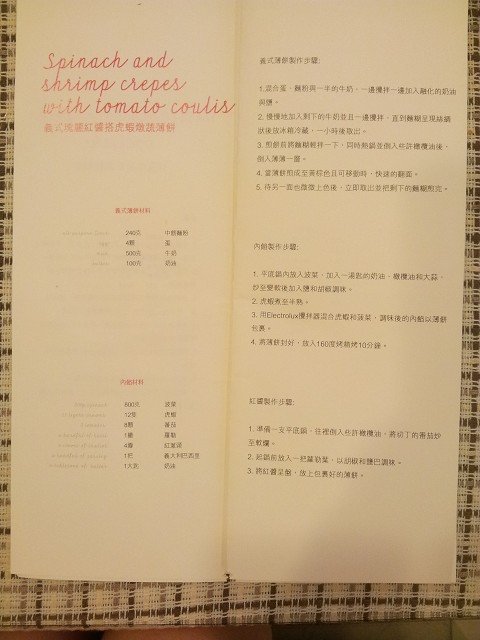 Spinach and
shrimp crepes
with tomato coulis
義式瑰麗紅醬搭虎蝦燉蔬薄餅
義式薄餅材料
240克 中筋麵粉
4顆 蛋
500克 牛奶
100克 奶油
內餡材料
800克 菠菜
12隻 虎蝦
8顆 番茄
1撮 羅勒
4瓣 紅蔥頭
1把 義大利巴西里
1大匙 奶油
義式薄餅製作步驟:
1.混合蛋、麵粉與一半的牛奶，一邊攪拌一邊加入融化的奶油
與鹽。
2. 慢慢地加入剩下的牛奶並且一邊攪拌，直到麵糊呈現綿綢
狀後放冰箱冷藏，一小時後取出。
3. 煎餅前將麵糊輕拌一下，同時熱鍋並倒入些許橄欖油後，
倒入薄薄一層。
4. 當薄餅煎成至黃棕色且可移動時，快速的翻面。
5. 待另一面也微微上色後，立即取出並把剩下的麵糊煎完。
內餡製作步驟:
1. 平底鍋內放入菠菜，加入一湯匙的奶油、橄欖油和大蒜，
炒至變軟後加入鹽和胡椒調味。
2. 虎蝦煮至半熟。
3. 用Electrolux攪拌器混合虎蝦和菠菜，調味後的內餡以薄餅
包裹。
4. 將薄餅封好，放入160度烤箱烤10分鐘。
紅醬製作步驟:
1. 準備一支平底鍋，往裡倒入些許橄欖油，將切丁的番茄炒
至軟爛。
2. 起鍋前放入一把羅勒葉，以胡椒和鹽巴調味。
3. 將紅醬呈盤，放上包裹好的薄餅。